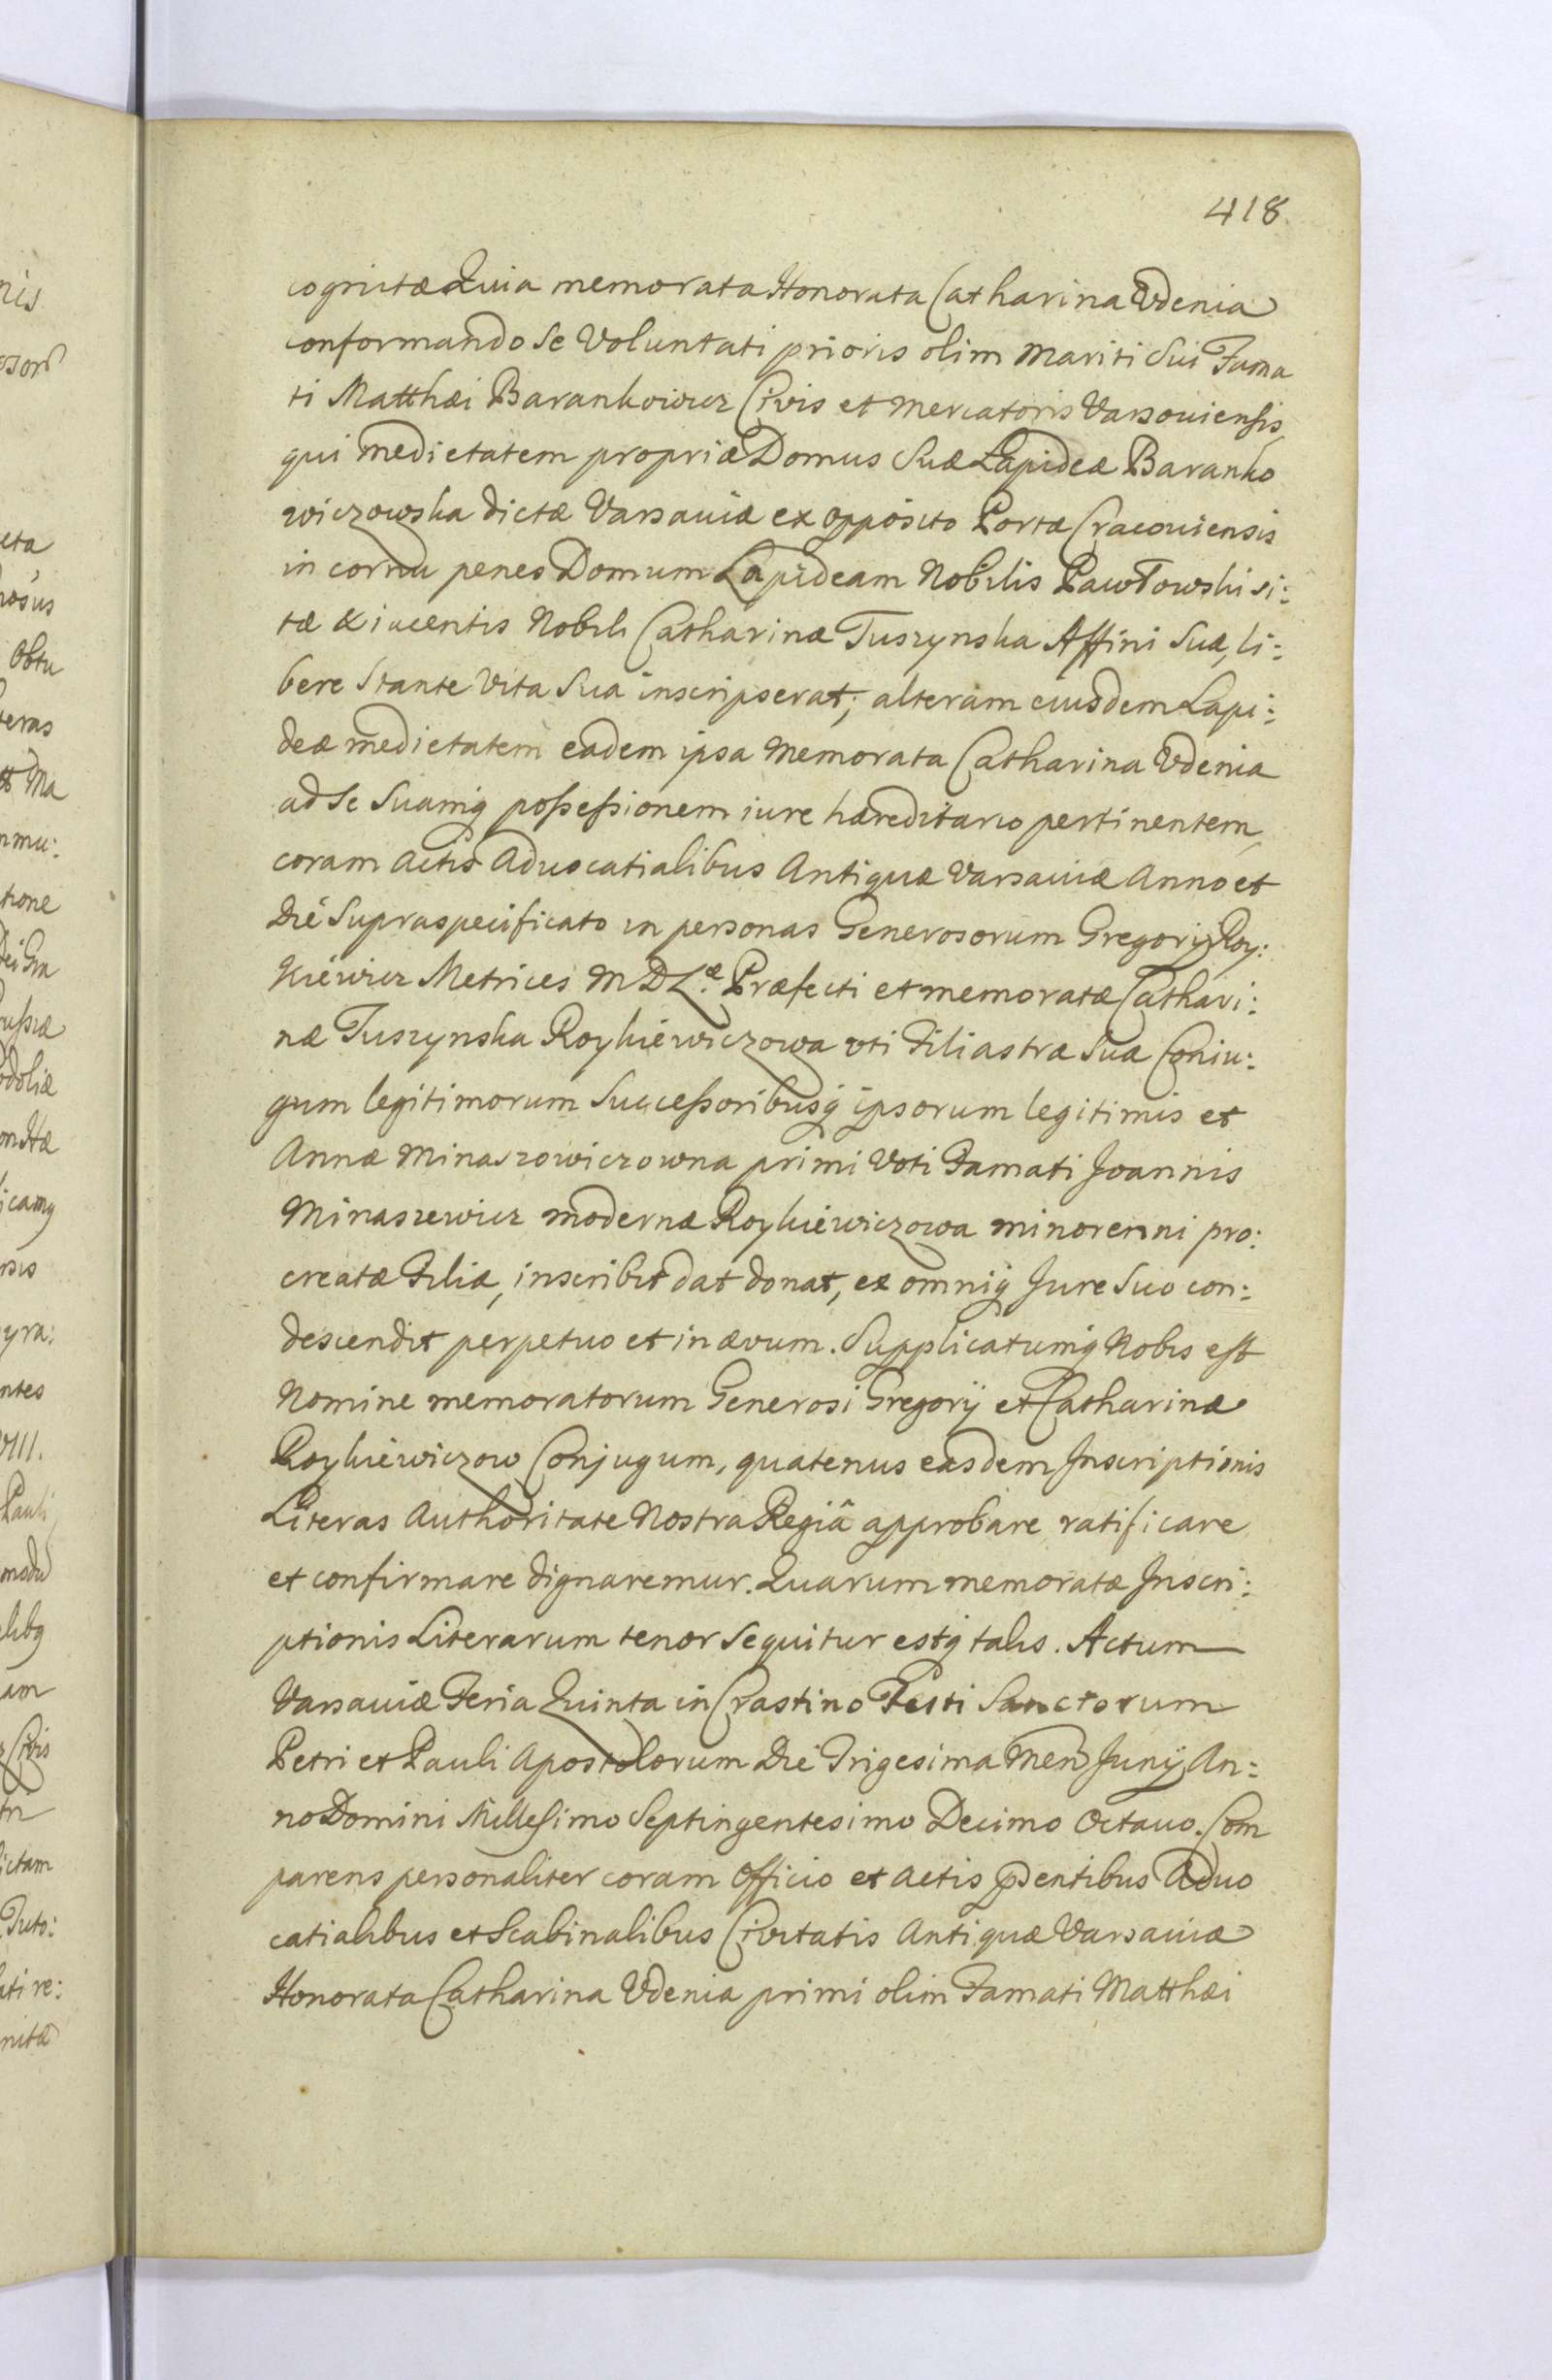 418
cognitæ Quia memorata Honorata Catharina Udenia
conformando Se Voluntati prioris olim Mariti Sui Fama
ti Matthæi Barankowicz Civis et Mercatoris Varsouiensis
qui Medietatem propriæ Domus Suæ Lapideæ Baranko
wiczowska dictæ Varsaviæ ex opposito Portæ Cracouiensis
in cornu penes Domum Lapideam Nobilis Pawłowski si:
tæ & iacentis Nobili Catharinæ Tuszynska Affini Suæ, li:
bere Stante Vita Sua inscripserat; alteram eiusdem Lapi:
deæ medietatem eadem ipsa Memorata Catharina Udenia
ad Se Suamq possessionem iure hæreditario pertinentem
coram Actis Aduocatialibus Antiquæ Varsauiæ Anno et
Die Supraspecificato in personas Generosorum Gregorij Roy:
kiewicz Metrices M D L.æ Præfecti et memoratæ Cathari:
næ Tuszynska Roykiewiczowa uti Filiastræ Suæ Coniu:
gum legitimorum Successoribusq ipsorum legitimis et
Annæ Minaszowiczowna primi Voti Famati Joannis
Minaszewicz modernæ Roykiewiczowa minorenni pro:
creatæ Filiæ, inscribit dat donat, ex omniq Jure Suo con:
descendit perpetuo et in ævum. Supplicatumq Nobis est
Nomine memoratorum Generosi Gregorij et Catharinæ
Roykiewiczow Conjugum, quatenus easdem Inscriptionis
Literas Authoritate Nostra Regiâ approbare ratificare
et confirmare dignaremur. Quarum memoratæ Inscri:
ptionis Literarum tenor Sequitur estq talis. Actum
Varsauiæ Feria Quinta in Crastino Festi Sanctorum
Petri et Pauli Apostolorum Die Trigesima Men Junij An:
no Domini Millesimo Septingentesimo Decimo Octauo. Com
parens personaliter coram Officio et Actis pñdentibus Aduo
catialibus et Scabinalibus Civitatis Antiquæ Varsauiæ
Honorata Catharina Udenia primi olim Famati Matthæi